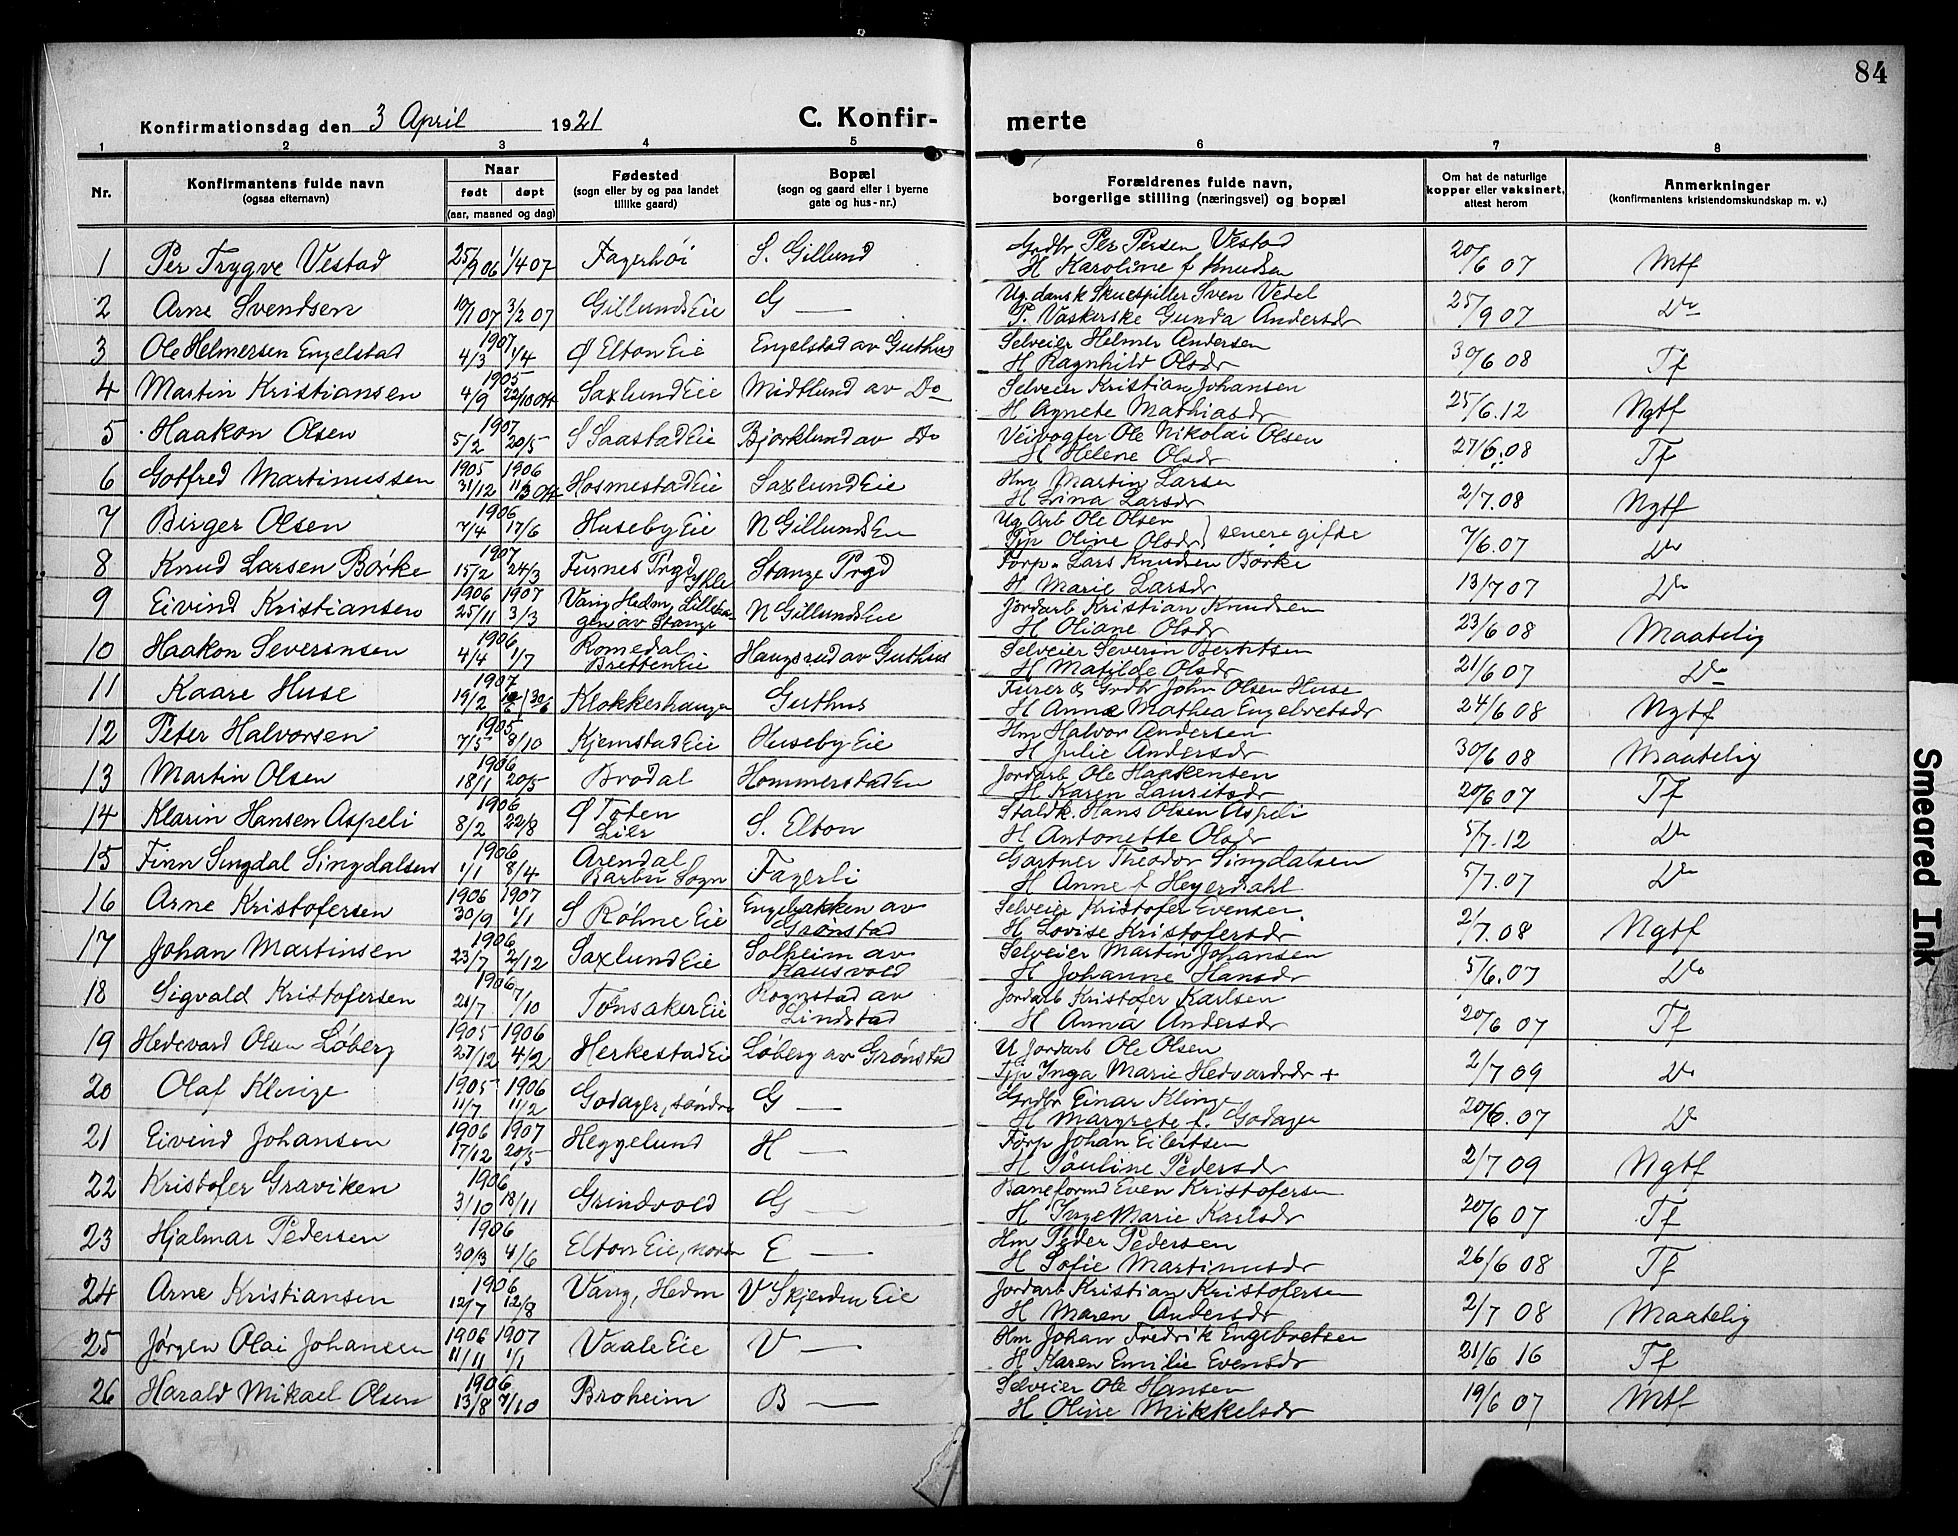 84
Konfirmationsdag den 3 April 1921
C. Konfir-
merte
1 2 3 4 5 6 7 8
Nr.
Konfirmantens fulde navn
(ogsaa efternavn)
Naar
født døpt
(aar, maaned og dag)
Fødested
(sogn eller by og paa landet
tillike gaard)
Bopæl
(sogn og gaard eller i byerne
gate og hus-nr.)
Forældrenes fulde navn,
borgerlige stilling (næringsvei) og bopæl
Om hat de naturlige
kopper eller vaksinert,
attest herom
Anmerkninger
(konfirmantens kristendomskundskap m. v.)
1 Per Trygve Vestad 25/9 06 1/4 07 Fagerhøi S. Gillund Grdbr Per Persen Vestad
H Karoline f Knudsen 20/6 07 Mtf
2 Arne Svendsen 10/1 07 3/2 07 Gillunds Eie G — Ug. dansk Skuespiller Sven Vedel
P. Vaskerske Gunda Andersdr 25/9 07 Do
3 Ole Helmersen Engelstad 1907 4/3 1/4 Ø Elton Eie Engelstad av Guthus Selveier Helmer Andersen
H Ragnhild Olsdr 30/6 08 Tf
4 Martin Kristiansen 1905 4/9 22/10 Saxlund Eie Midtlund av Do Selveier Kristian Johansen
H Agnete Mathiasdr 25/6.12 Ngtf
5 Haakon Olsen 1907 5/2 20/5 S Saastad Eie Bjørklund av Do Veivogter Ole Nikolai Olsen
H Helene Olsdr 27/6.08 Tf
6 Gotfred Martinussen 1905 1906 31/12 11/3 Hosmestad Eie Saxlund Eie Hm Martin Larsen
H Lina Larsdr 2/7.08 Ngtf
7 Birger Olsen 1906 7/4 17/6 Huseby Eie N Gillunds En Ug Arb Ole Olsen
Tjp Oline Olsdr } senere gifte 7/6.07 Do
8 Knud Larsen Børke 1907 15/2 24/3 Furnes Prgd Ykle Stange Prgd Forp. Lars Knudsen Børke
H Marie Larsdr 13/7 07 Do
9 Eivind Kristiansen 1906 1907 25/11 3/3 Vang Hedm, Lilleha-
gen av Stange N Gillunds Eie Jordarb Kristian Knudsen
H Oliane Olsdr 23/6 08 Maatelig
10 Haakon Severinsen 1906 4/4 1/7 Romedal
Bretten Eie Haugsrud av Guthus Selveier Severin Berntsen
H Matilde Olsdr 21/6 07 Do
11 Kaare Huse 1907 19/2 30/6 Klokkerhaugen Guthus Furer & Grdbr John Olsen Huse
H Anna Mathea Engelbretsdr 24/6 08 Ngtf
12 Peter Halvorsen 1905 7/5 8/10 Kjemstad Eie Huseby Eie Hm Halvor Andersen
H Julie Andersdr 30/6 08 Maatelig
13 Martin Olsen 1906 18/1 20/5 Brodal Hommerstad En Jordarb Ole Haakensen
H Karen Lauritsdr 20/6 07 Tf
14 Klarin Hansen Aspeli 1906 8/2 22/8 Ø Toten
Lier S. Elton Staldk. Hans Olsen Aspeli
H Antonette Olsdr 5/7.12 Do
15 Finn Singdal Singdalsen 1906 1/1 8/4 Arendal
Barbu Sogn Fagerli Gartner Theodor Singdalsen
H Anne f Heyerdahl 5/7.07 Do
16 Arne Kristofersen 1906 1907 30/9 1/1 S Røhne Eie Engebakken av
Grønstad Selveier Kristofer Evensen
H Lovise Kristofersdr 2/7.08 Ngtf
17 Johan Martinsen 1906 23/7 2/12 Saxlund Eie Solheim av
Hausvold Selveier Martin Johansen
H Johanne Hansdr 5/6.07 Do
18 Sigvald Kristofersen 1906 21/7 7/10 Tonsaker Eie Rognstad av
Lindstad Jordarb Kristofer Karlsen
H Anna Andersdr 20/6 07 Tf
19 Hedevard Olsen Løberg 1905 1906 27/12 4/2 Herkestad Eie Løberg av Grønstad U Jordarb Ole Olsen
Tjp Inga Marie Hedvardsdr + 2/7 09 Do
20 Olaf Klinge 1905 1906 11/7 11/2 Godager, søndre G — Grdbr Einar Klinge
H Margrete f. Godager 20/6. 07 Do
21 Eivind Johansen 1906 1907 17/12 20/5 Heggelund H — Forp Johan Eilertsen
H Pauline Pedersdr 2/7 09 Ngtf
22 Kristofer Graviken 1906 3/10 18/11 Grindvold G — Baneformd Even Kristofersen
H Inge Marie Karlsdr 20/6 07 Tf
23 Hjalmar Pedersen 1906 30/3 4/6 Elton Eie, nordn E — Hm Peder Pedersen
H Sofie Martinusdr 26/6 08 Tf
24 Arne Kristiansen 1906 12/7 12/8 Vang, Hedm V Skjerden Eie Jordarb Kristian Kristofersen
H Maren Andersdr 2/7 08 Maatelig
25 Jørgen Olai Johansen 1906 1907 11/11 1/1 Vaale Eie V — Hm Johan Fredrik Engebretsen
H Karen Emilie Evensdr 21/6 16 Tf
26 Harald Mikael Olsen 1906 13/8 7/10 Broheim B — Selveier Ole Hansen
H. Oline Mikkelsdr 19/6 07 Mtf
Smeared Ink